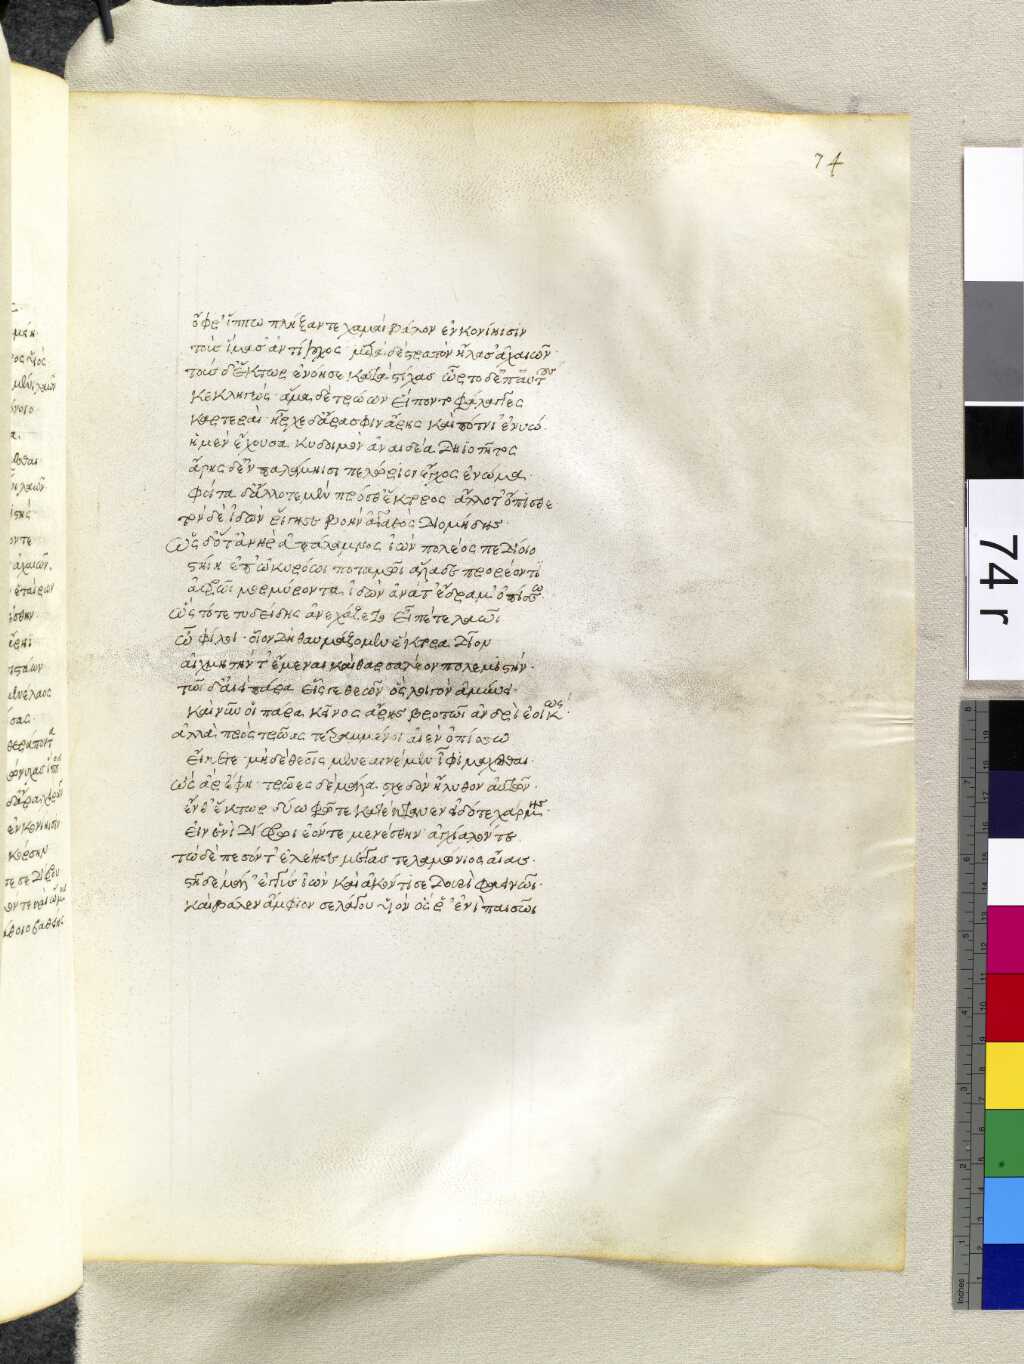 74
ὄφρ' ἵππω πλήξαντε χαμαὶ βάλον ἐν κονίηισιν
τοὺς ἵμασ' ἀντίλοχος· μετὰ δὲ στρατὸν ἤλασ' ἀχαιῶν·
τοὺς δ' ἕκτωρ ἐνόησε κατὰ στίχας ὦρτο δ' ἐπ' αὐτοὺς
κεκληγώς· ἅμα δὲ τρώων εἵποντο φάλαγγες
καρτεραὶ· ἦρχε δ' ἄρα σφιν ἄρης καὶ πότνι' ἐνυώ·
ἡ μὲν ἔχουσα κυδοιμὸν ἀναιδέα δηϊοτῆτος
ἄρης δ' ἐν παλάμηισι πελώριον ἔγχος ἐνώμα·
φοίτα δ' ἄλλοτε μὲν πρόσθ' ἕκτορος ἄλλοτ' ὄπισθε
τὸν δὲ ἰδὼν ῥίγησε βοὴν ἀγαθὸς διομήδης·
ὡς δ' ὅτ' ἀνὴρ ἀπάλαμνος ἰὼν πολέος πεδίοιο
στήηι ἐπ' ὠκυρόωι ποταμῶι ἅλαδε προρέοντι
ἀφρῶι μορμύροντα ἰδὼν ἀνά τ' ἔδραμ' ὀπίσσω·
ὣς τότε τυδείδης ἀνεχάζετο εἶπέ τε λαῶι
ὦ φίλοι· οἷον δὴ θαυμάζομεν ἕκτορα δῖον
αἰχμητήν τ' ἔμεναι καὶ θαρσαλέον πολεμιστήν·
τῶι δ' αἰεὶ πάρα εἷς γε θεῶν ὃς λοιγὸν ἀμύνει·
καὶ νῦν οἱ πάρα κεῖνος ἄρης βροτῶι ἀνδρὶ ἐοικώς·
ἀλλὰ πρὸς τρῶας τετραμμένοι αἰὲν ὀπίσσω
εἴκετε· μηδὲ θεοῖς μενεαινέμεν ἶφι μάχεσθαι·
ὣς ἄρ ἔφη· τρῶες δὲ μάλα σχεδὸν ἤλυθον αὐτῶν·
ἔνθ' ἕκτωρ δύω φῶτε κατέκτανεν εἰδότε χάρμης
εἰν ἑνὶ δίφρωι ἐόντε μενέσθην ἀγχίαλόν τε·
τὼ δὲ πεσόντ' ἐλέησε μέγας τελαμώνιος αἴας·
στῆ δὲ μάλ' ἐγγὺς ἰὼν καὶ ἀκόντισε δουρὶ φαεινῶι·
καὶ βάλεν ἄμφιον σελάγου υἱὸν ὅς ῥ' ἐνὶ παισῶι
74 r